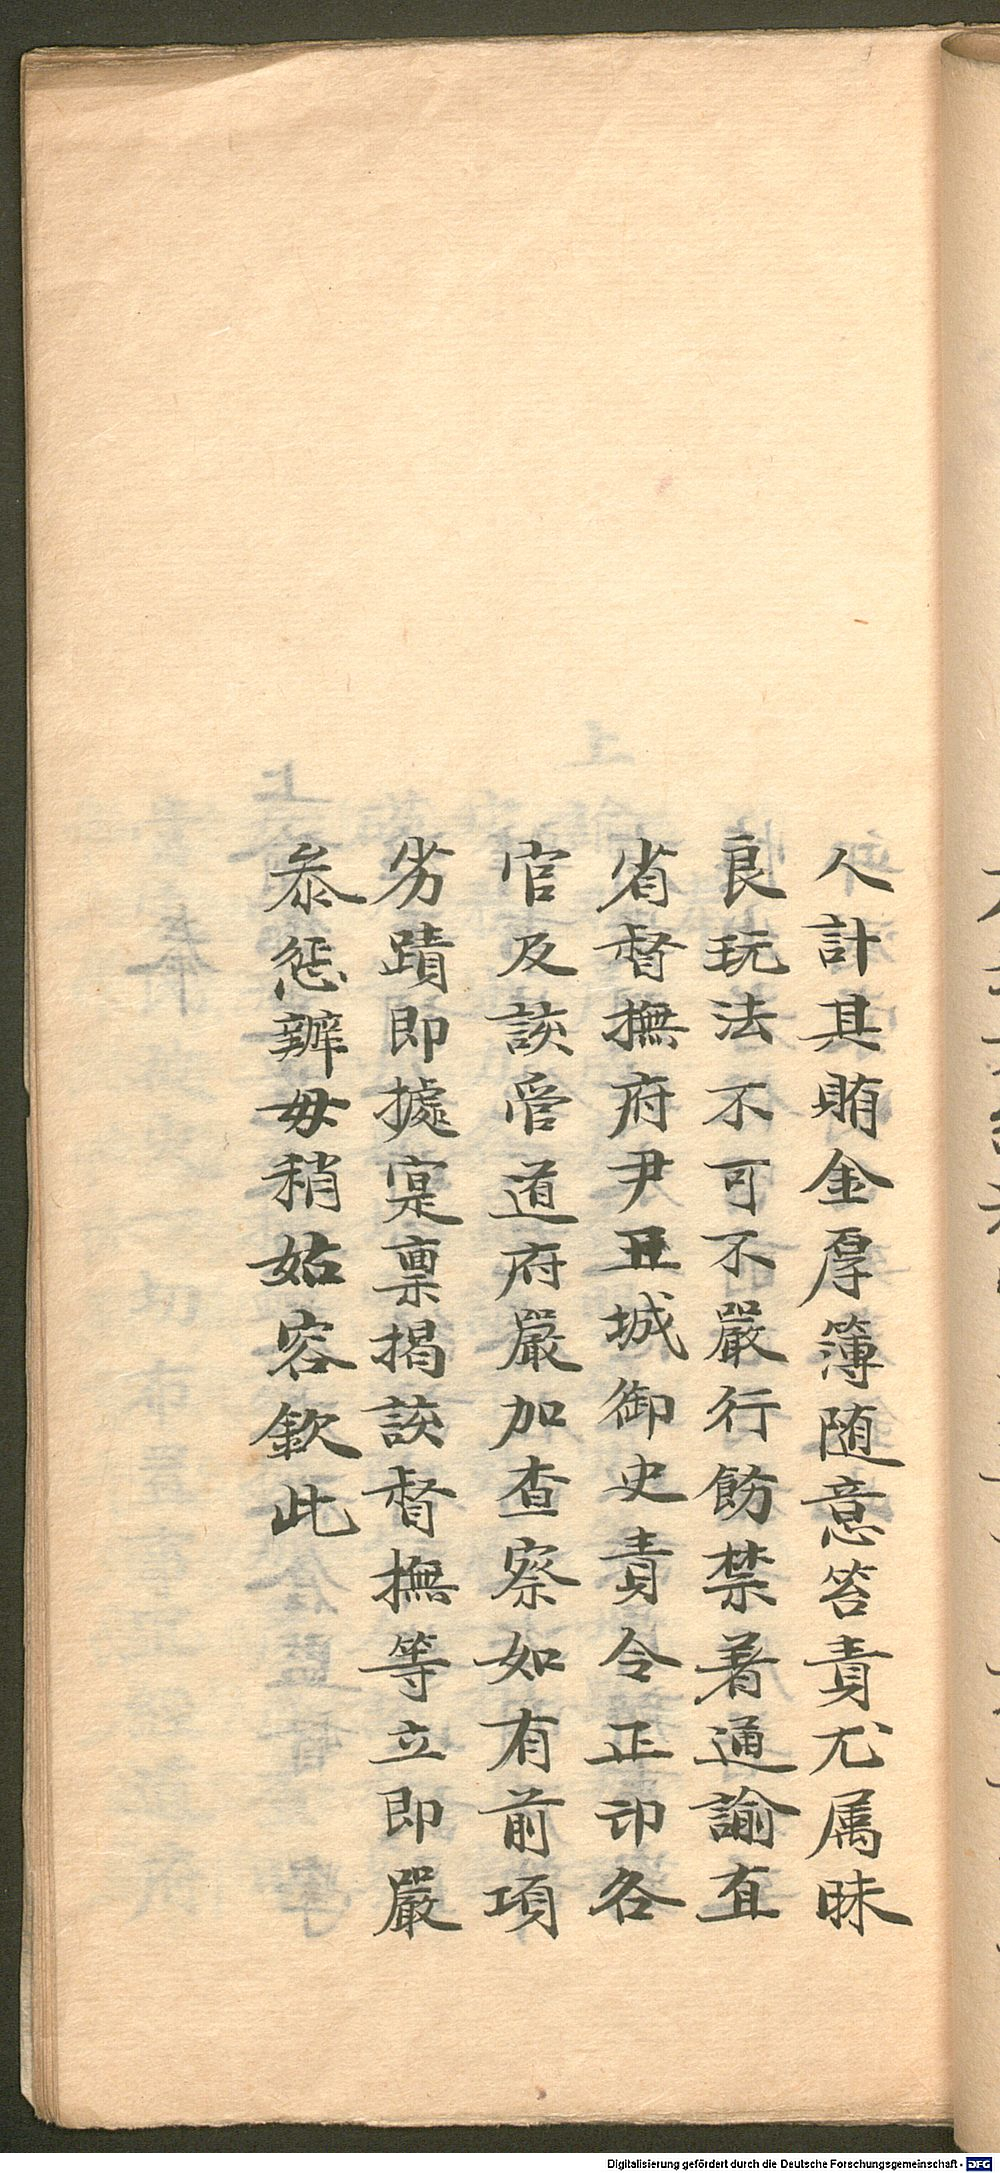 人計其賄金厚簿随意笞責尤属昧
良玩法不可不嚴行飭禁着通諭直
省督撫府尹五城御史責令正印各
官及該管道府嚴加查察如有前項
劣蹟即據寔禀揭該督撫等立即嚴
叅懲辦毋稍姑容欽此
Digitalisierung gefördert durch die Deutsche Forschungsgemeinschaft - DFG